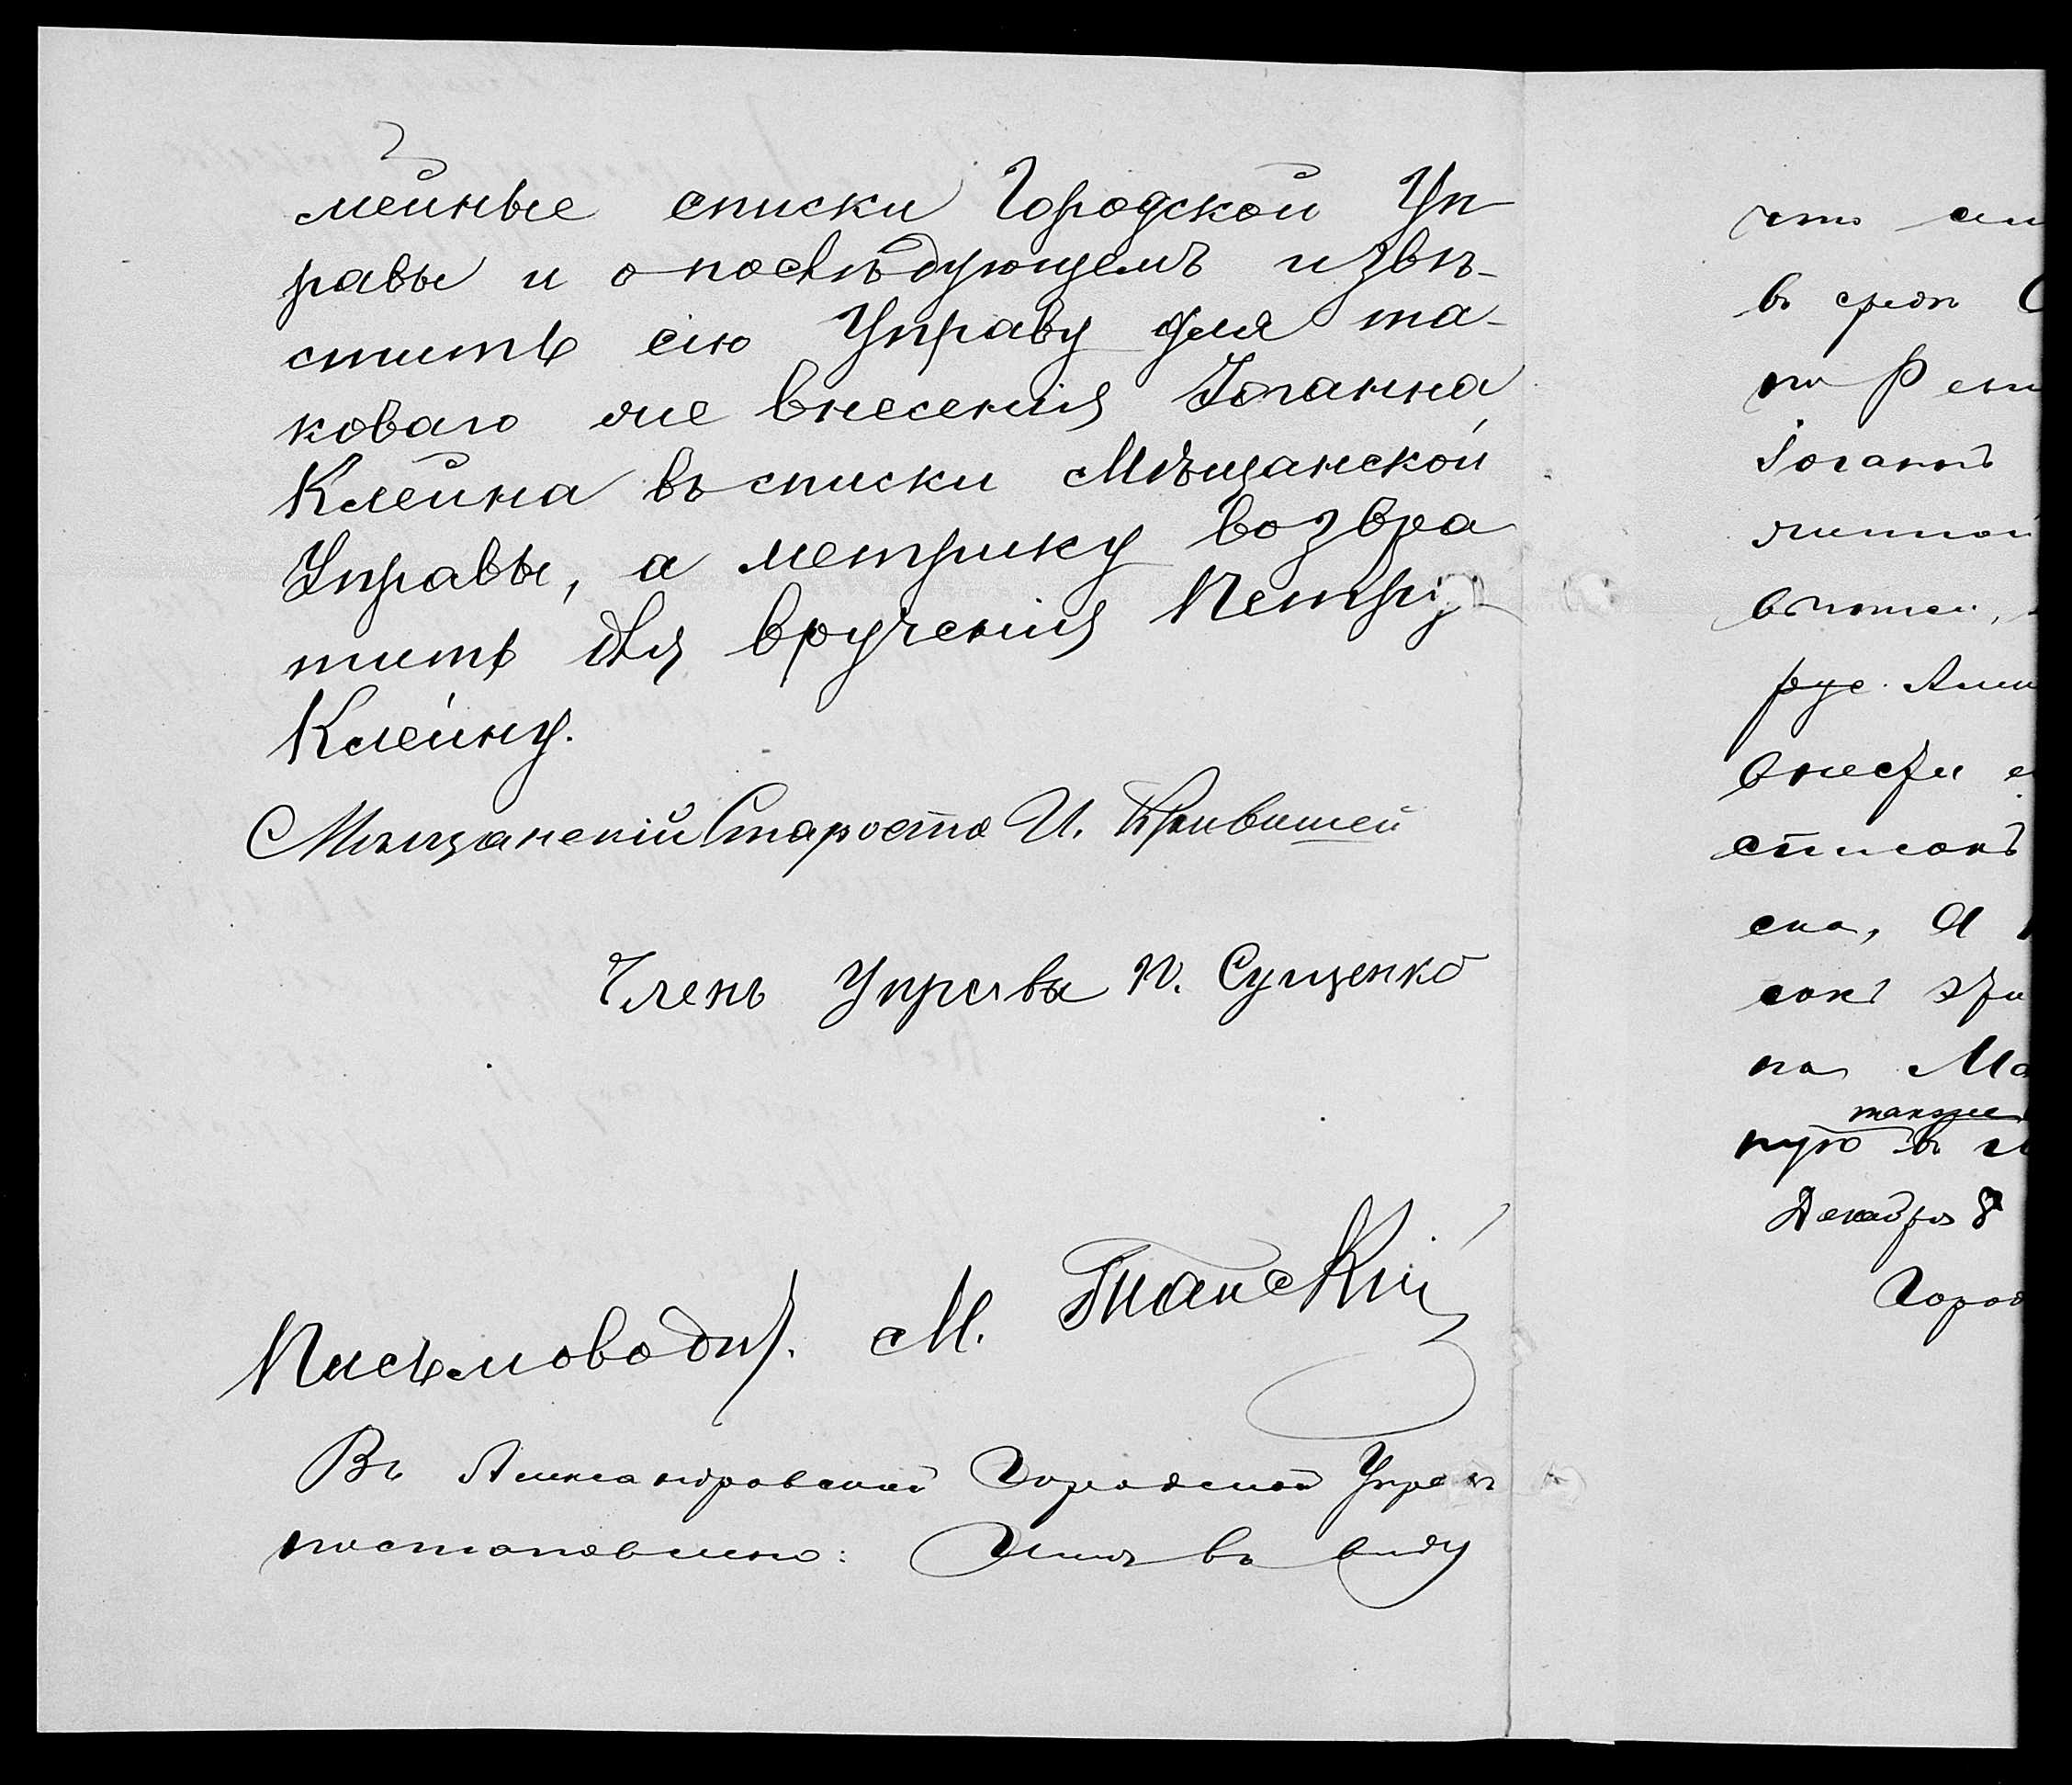 мейные списки Городской Уп
равы и о послѣдующемъ извѣ-
стить сію Управу для та-
коваго же внесенія Іоганна
Клейна въ списки Мѣщанской
Управы, а метрику возвра
тить для врученія Петру
Клейну.
Мѣщанскій Староста И.
Членъ Управы П. Сущенко
Письмоводит. М.
Въ Александровской Городской Управѣ
постановлено: Имѣя въ виду
что
въ
по
Іоганнъ
рус.
внести
списокъ
ска, а
сокъ
на Ма
также
ную въ
Декабря 8
Город